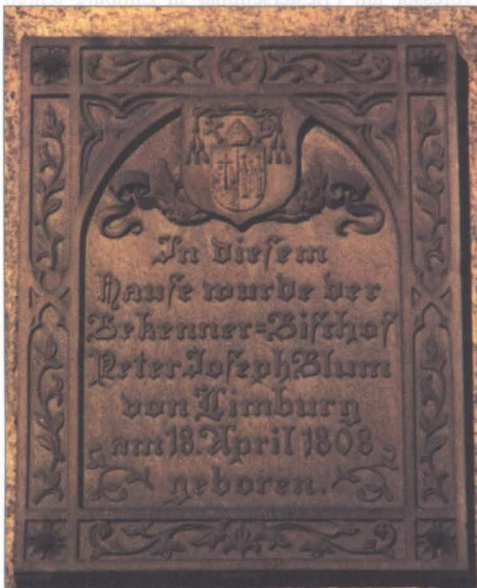 In diesem
Hause wurde der
Bekenner=Bischof
Peter Joseph Blum
von Limburg
am 18. April 1808
geboren.